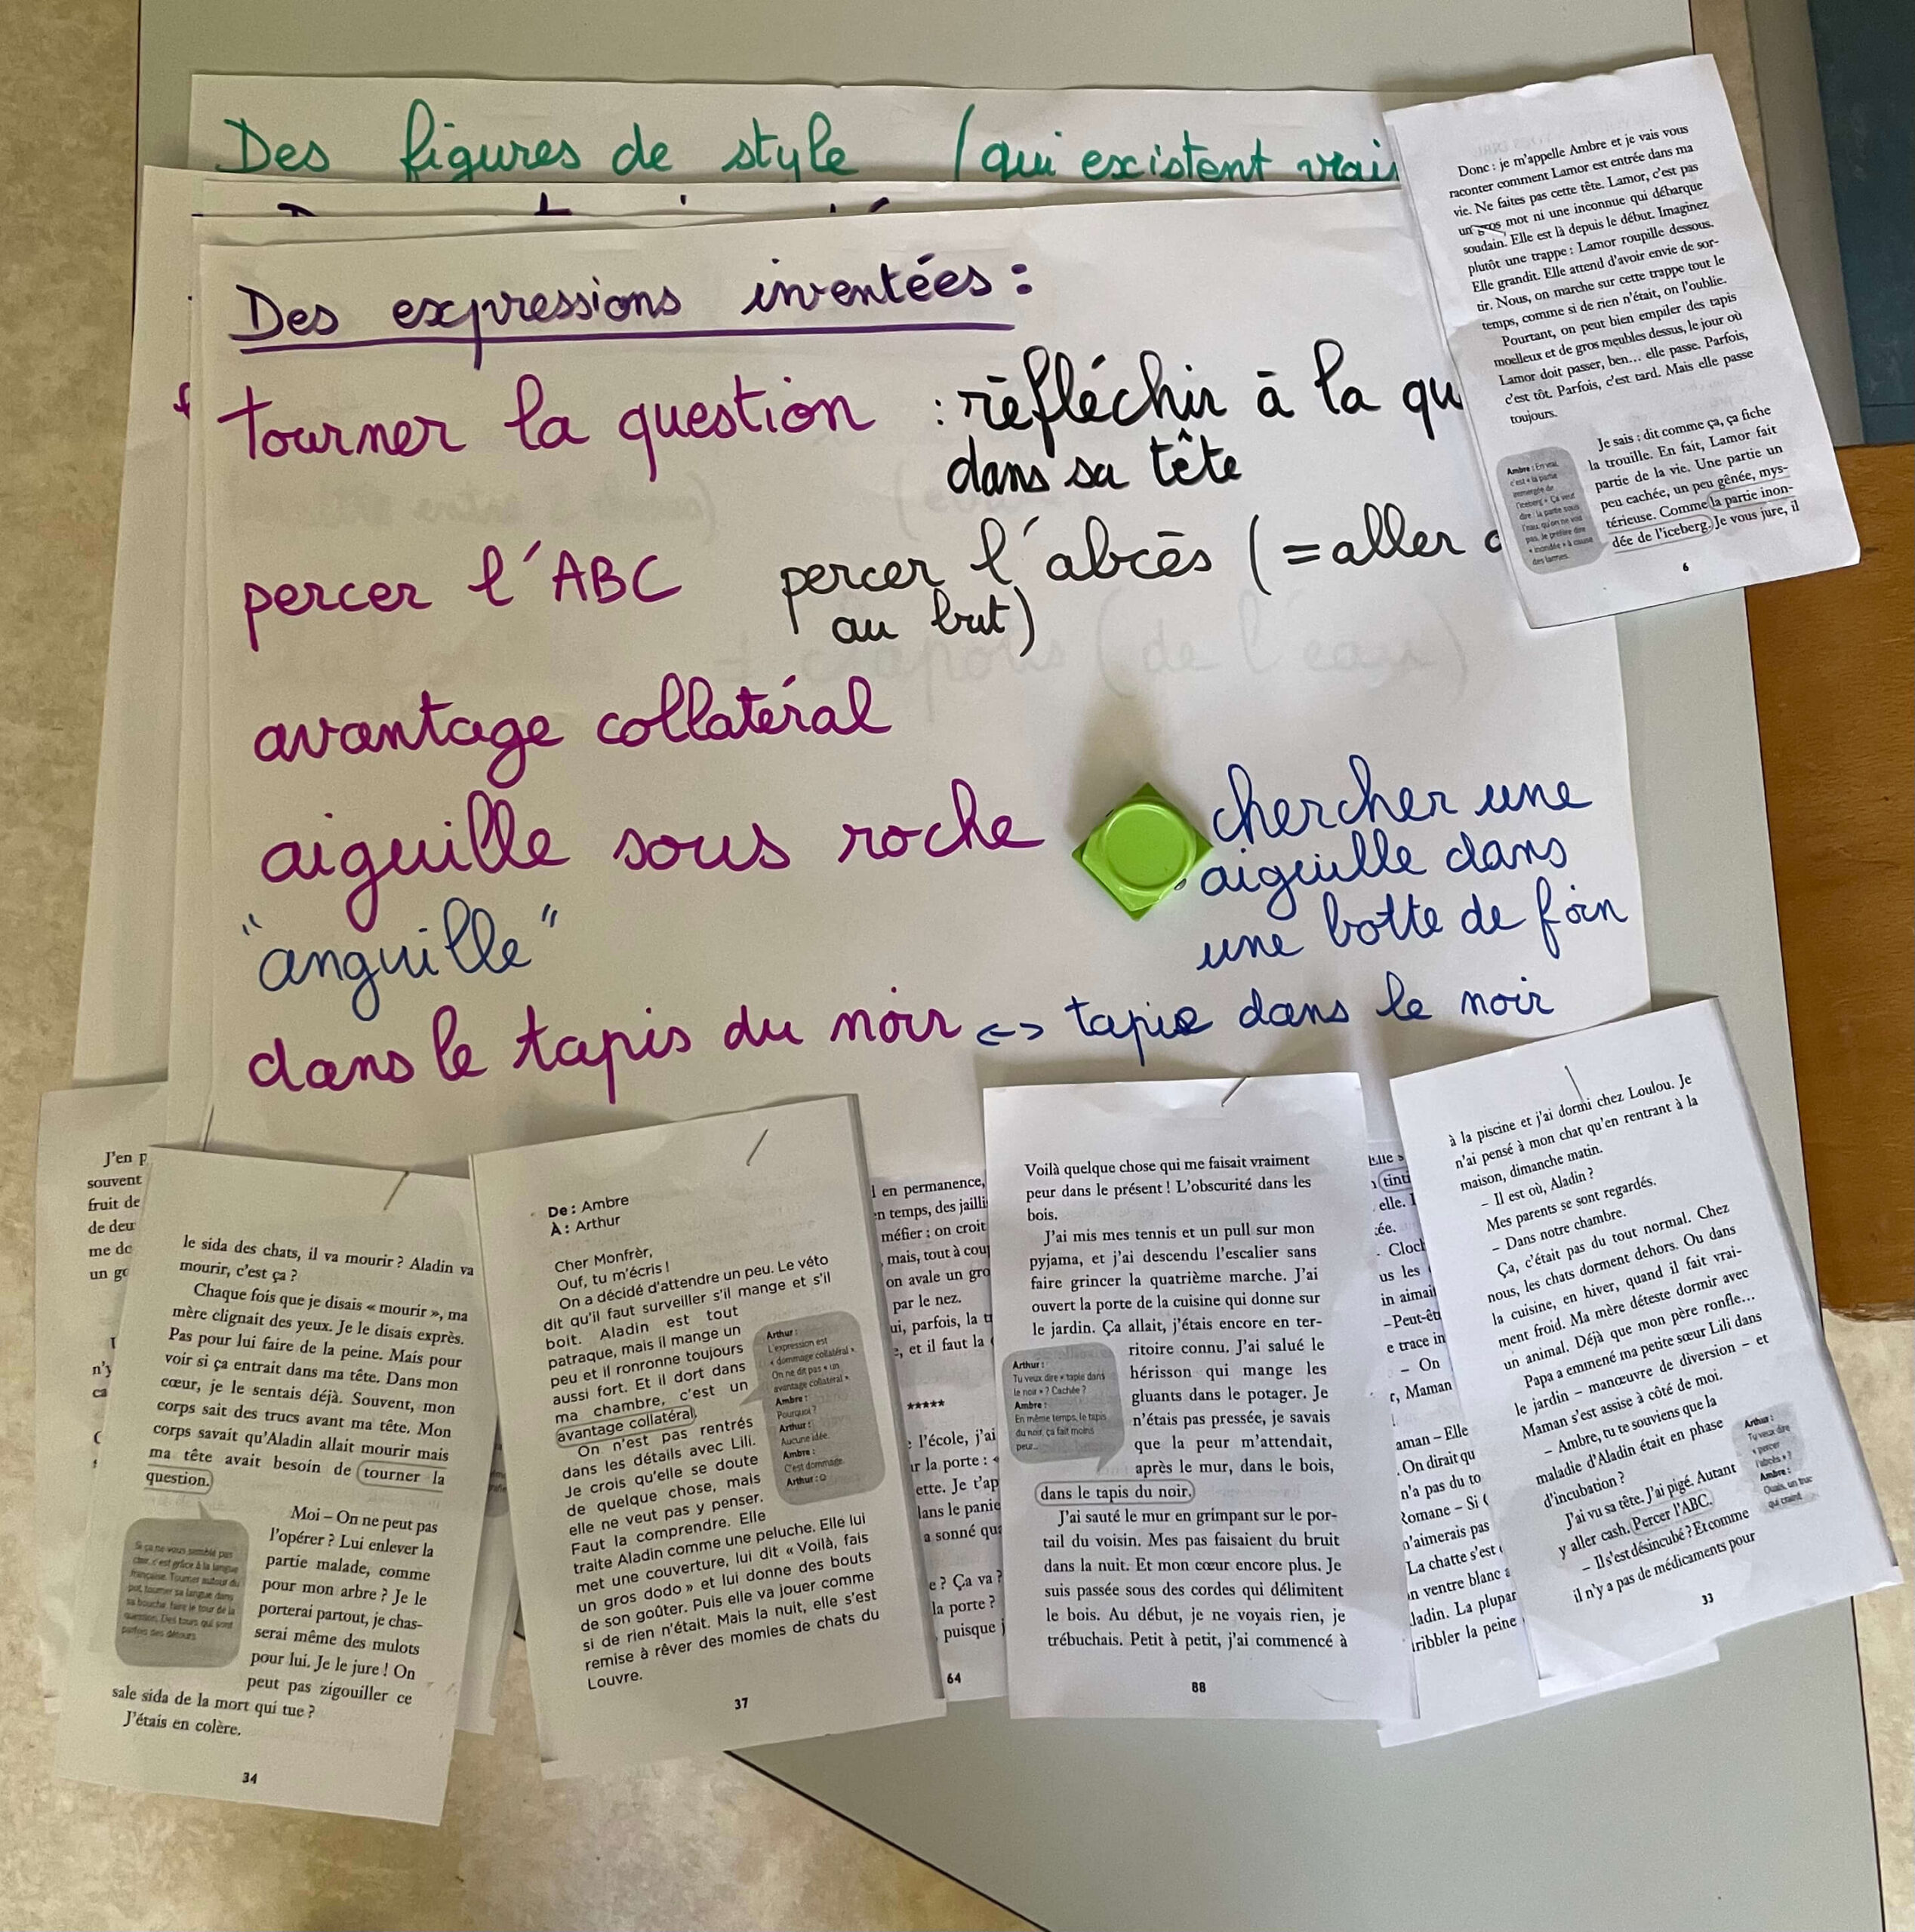 Des figures de style (qui existent vrai
Des expressions inventées :
tourner la question : réfléchir à la qu
dans sa tête
percer l'ABC percer l'abcès (= aller
au but)
avantage collatéral
aiguille sous roche chercher une
aiguille dans
une botte de foin
"anguille"
dans le tapis du noir <-> tapie dans le noir
Donc : je m'appelle Ambre et je vais vous
raconter comment Lamor est entrée dans ma
vie. Ne faites pas cette tête. Lamor, c'est pas
un gros mot ni une inconnue qui débarque
soudain. Elle est là depuis le début. Imaginez
plutôt une trappe : Lamor roupille dessous.
Elle grandit. Elle attend d'avoir envie de sor-
tir. Nous, on marche sur cette trappe tout le
temps, comme si de rien n'était, on l'oublie.
Pourtant, on peut bien empiler des tapis
moelleux et de gros meubles dessus, le jour où
Lamor doit passer, ben... elle passe. Parfois,
c'est tôt. Parfois, c'est tard. Mais elle passe
toujours.
Je sais : dit comme ça, ça fiche
la trouille. En fait, Lamor fait
partie de la vie. Une partie un
peu cachée, un peu gênée, mys-
térieuse. Comme la partie inon-
dée de l'iceberg. Je vous jure, il
Ambre : En vrai,
c'est « la partie
immergée de
l'iceberg ». Ça veut
dire : la partie sous
l'eau, qu'on ne voit
pas. Je préfère dire
« inondée » à cause
des larmes.
6
J'en p
souvent
fruit de
de deu
me do
un go
n'y
ca
le sida des chats, il va mourir ? Aladin va
mourir, c'est ça ?
Chaque fois que je disais « mourir », ma
mère clignait des yeux. Je le disais exprès.
Pas pour lui faire de la peine. Mais pour
voir si ça entrait dans ma tête. Dans mon
cœur, je le sentais déjà. Souvent, mon
corps sait des trucs avant ma tête. Mon
corps savait qu'Aladin allait mourir mais
ma tête avait besoin de tourner la
question.
Moi – On ne peut pas
l'opérer ? Lui enlever la
partie malade, comme
pour mon arbre ? Je le
porterai partout, je chas-
serai même des mulots
pour lui. Je le jure ! On
peut pas zigouiller ce
sale sida de la mort qui tue ?
J'étais en colère.
Si ça ne vous semble pas
clair, c'est grâce à la langue
française. Tourner autour du
pot, tourner sa langue dans
sa bouche, faire le tour de la
question. Des tours qui sont
parfois des détours.
34
De : Ambre
À : Arthur
Cher Monfrèr,
Ouf, tu m'écris !
On a décidé d'attendre un peu. Le véto
dit qu'il faut surveiller s'il mange et s'il
boit. Aladin est tout
patraque, mais il mange un
peu et il ronronne toujours
aussi fort. Et il dort dans
ma chambre, c'est un
avantage collatéral.
On n'est pas rentrés
dans les détails avec Lili.
Je crois qu'elle se doute
de quelque chose, mais
elle ne veut pas y penser.
Faut la comprendre. Elle
traite Aladin comme une peluche. Elle lui
met une couverture, lui dit « Voilà, fais
un gros dodo » et lui donne des bouts
de son goûter. Puis elle va jouer comme
si de rien n'était. Mais la nuit, elle s'est
remise à rêver des momies de chats du
Louvre.
Arthur :
L'expression est
« dommage collatéral ».
On ne dit pas « un
avantage collatéral »
Ambre :
Pourquoi ?
Arthur :
Aucune idée.
Ambre :
C'est dommage.
Arthur : ☺
37
l en permanence,
n temps, des jailli
méfier : on croit
mais, tout à coup
on avale un gro
par le nez.
ui, parfois, la t
, et il faut la
*****
l'école, j'ai
r la porte : «
ette. Je t'ap
lans le panie
a sonné qu
e ? Ça va ?
la porte ?
puisque j
64
Voilà quelque chose qui me faisait vraiment
peur dans le présent ! L'obscurité dans les
bois.
J'ai mis mes tennis et un pull sur mon
pyjama, et j'ai descendu l'escalier sans
faire grincer la quatrième marche. J'ai
ouvert la porte de la cuisine qui donne sur
le jardin. Ça allait, j'étais encore en ter-
ritoire connu. J'ai salué le
hérisson qui mange les
gluants dans le potager. Je
n'étais pas pressée, je savais
que la peur m'attendait,
après le mur, dans le bois,
dans le tapis du noir.
J'ai sauté le mur en grimpant sur le por-
tail du voisin. Mes pas faisaient du bruit
dans la nuit. Et mon cœur encore plus. Je
suis passée sous des cordes qui délimitent
le bois. Au début, je ne voyais rien, je
trébuchais. Petit à petit, j'ai commencé à
Arthur :
Tu veux dire « tapie dans
le noir » ? Cachée ?
Ambre :
En même temps, le tapis
du noir, ça fait moins
peur...
88
tinti
elle.
ée.
- Cloch
us les
in aimai
– Peut-êt
e trace in
– On
r, Maman
aman – Elle
On dirait qu
n'a pas du to
Romane – Si
n'aimerais pas
La chatte s'est
n ventre blanc
ladin. La plupar
ribbler la peine
à la piscine et j'ai dormi chez Loulou. Je
n'ai pensé à mon chat qu'en rentrant à la
maison, dimanche matin.
– Il est où, Aladin ?
Mes parents se sont regardés.
– Dans notre chambre.
Ça, c'était pas du tout normal. Chez
nous, les chats dorment dehors. Ou dans
la cuisine, en hiver, quand il fait vrai-
ment froid. Ma mère déteste dormir avec
un animal. Déjà que mon père ronfle...
Papa a emmené ma petite sœur Lili dans
le jardin – manœuvre de diversion – et
Maman s'est assise à côté de moi.
– Ambre, tu te souviens que la
maladie d'Aladin était en phase
d'incubation ?
J'ai vu sa tête. J'ai pigé. Autant
y aller cash. Percer l'ABC.
– Il s'est désincubé ? Et comme
il n'y a pas de médicaments pour
Arthur :
Tu veux dire
« percer
l'abcès » ?
Ambre :
Ouais, un truc
qui craint.
33